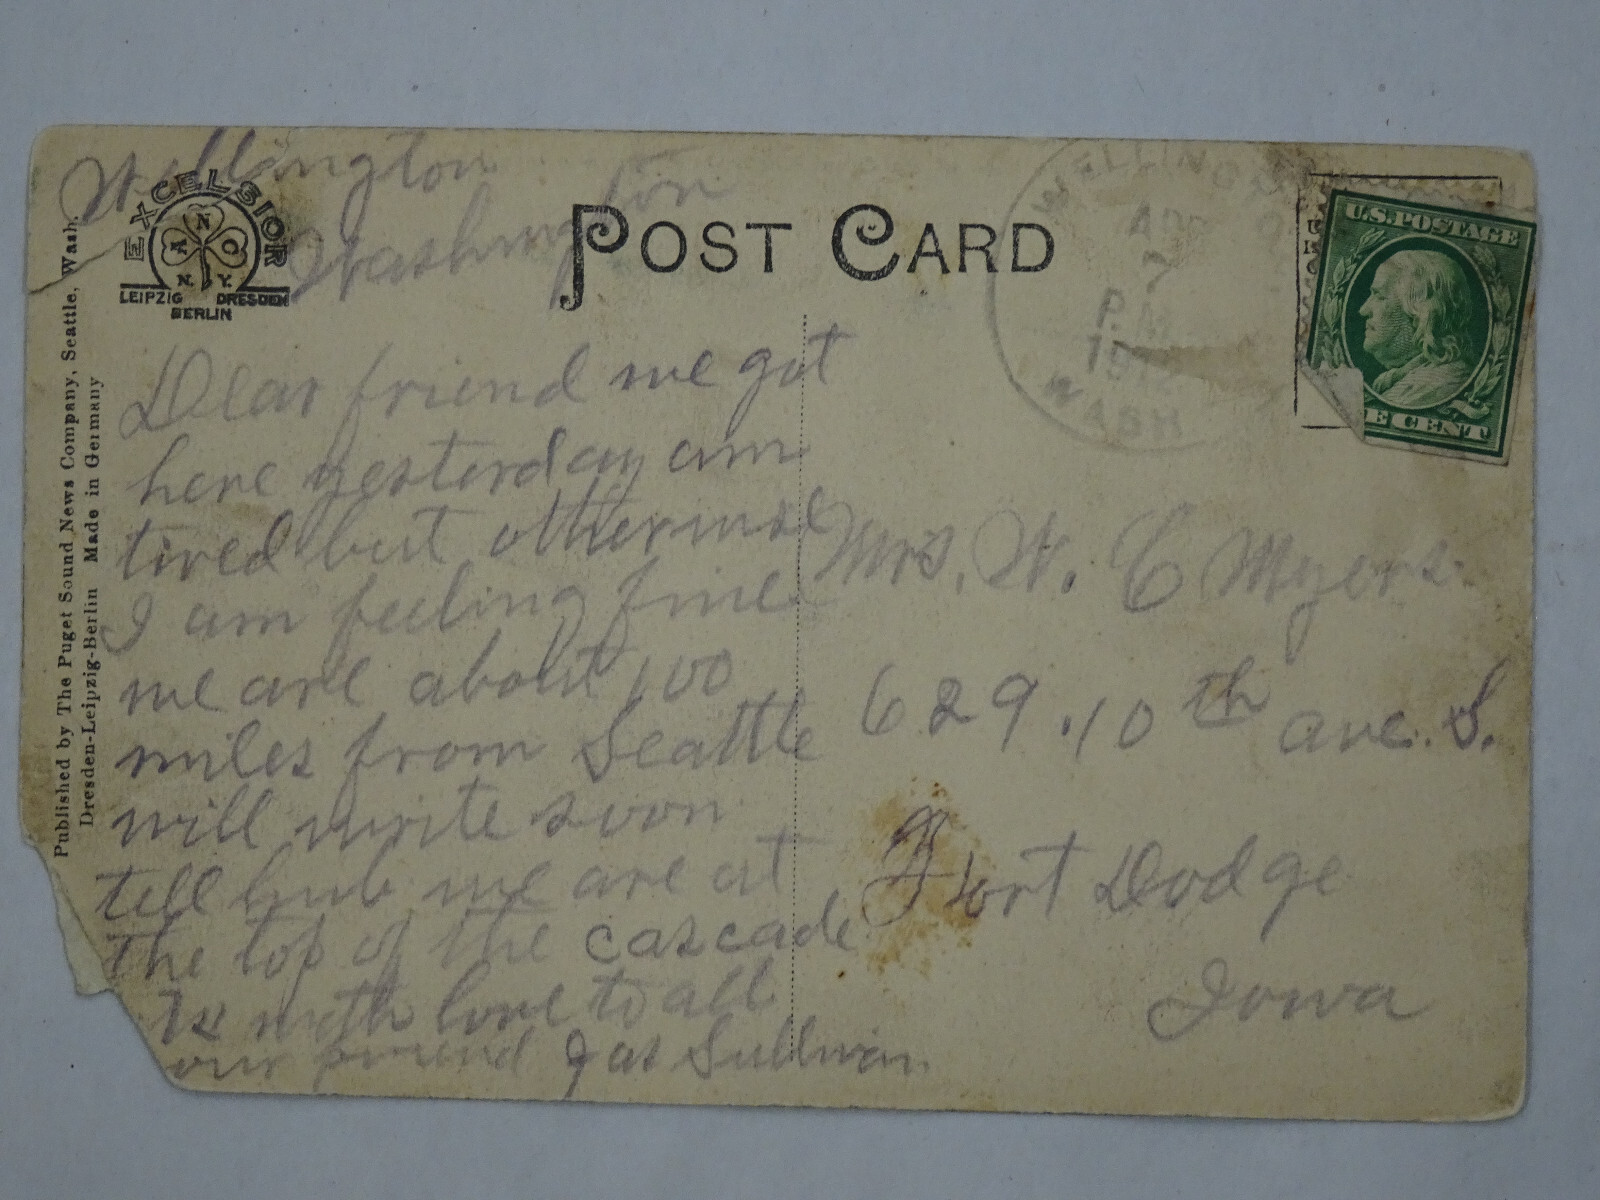 Wellington
Washington
EXCELSIOR
A N C
N. Y.
LEIPZIG DRESDEN
BERLIN
POST CARD
Published by The Puget Sound News Company, Seattle, Wash.
Dresden-Leipzig-Berlin Made in Germany
WELLING
APR
7
P.M.
191
WASH
U.S. POSTAGE
E CENT
Dear friend we got
here yesterday am
tired but otherwise
I am feeling fine
we are about 100
miles from Seattle
will write soon
tell hub we are at
the top of the cascade
with love to all
our friend Jas Sullivan
Mrs. W. C Myers
629.10th ave. S.
Fort Dodge
Iowa